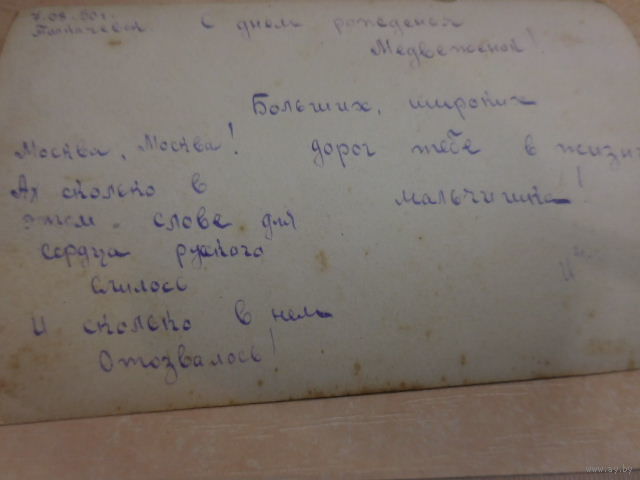 7.08.60г.
С днем рождения
Медвежоной!
Больших, широких
дорог тебе в жизни
мальчишка!
Москва, Москва!
Ах сколько в
этом слове для
сердца руского
слилось
И сколько в нем
Отозвалось!
www.ay.by